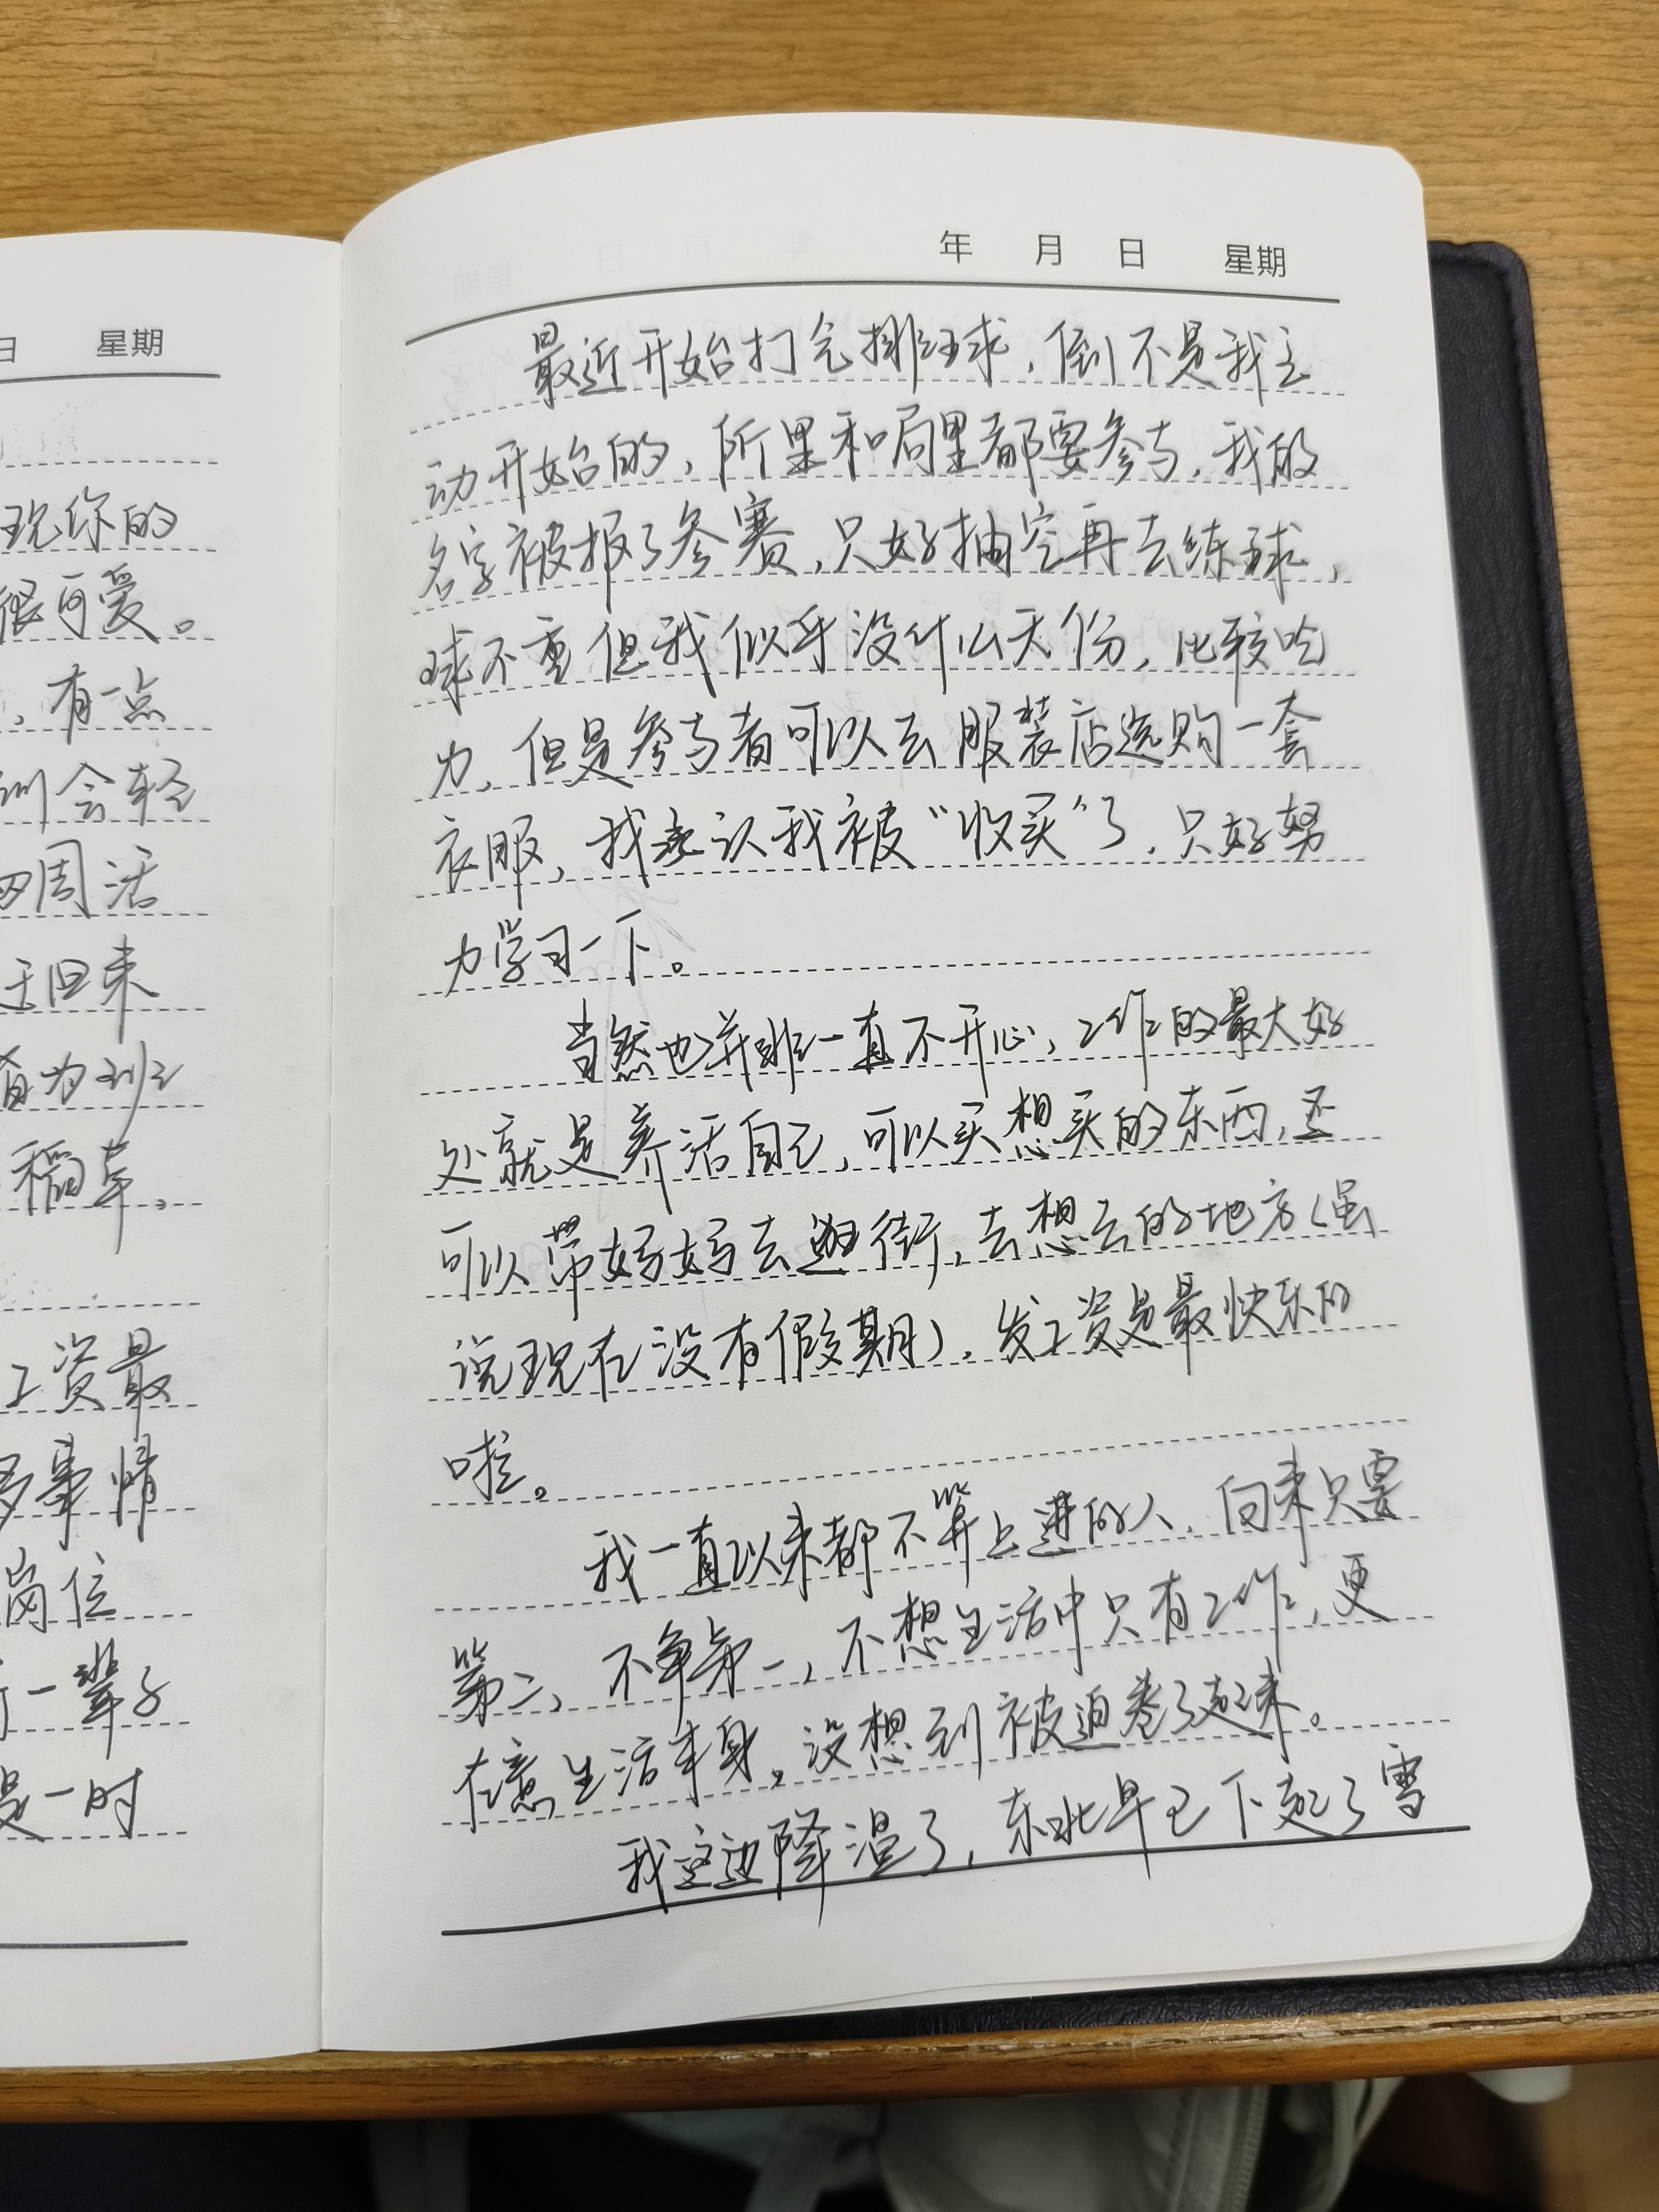 日 星期
现你的
很可爱。
，有一点
训会轻
四周活
于回来
稻草。
工资最
多事情
岗位
一辈子
是一时
年 月 日 星期
最近开始打气排球，倒不是我主
动开始的，所里和局里都要参与，我的
名字被报了参赛，只好抽空再去练球，
球不重但我似乎没什么天份，比较吃
力，但是参与者可以去服装店选购一套
衣服，我承认我被“收买”了，只好努
力学习一下。
当然也并非一直不开心，工作的最大好
处就是养活自己，可以买想买的东西，还
可以带妈妈去逛街，去想去的地方（虽
说现在没有假期），发工资是最快乐的
啦。
我一直以来都不算上进的人，向来只要
第二、不争第一，不想生活中只有工作，更
在意生活本身。没想到被迫卷了起来。
我这边降温了，东北早已下起了雪